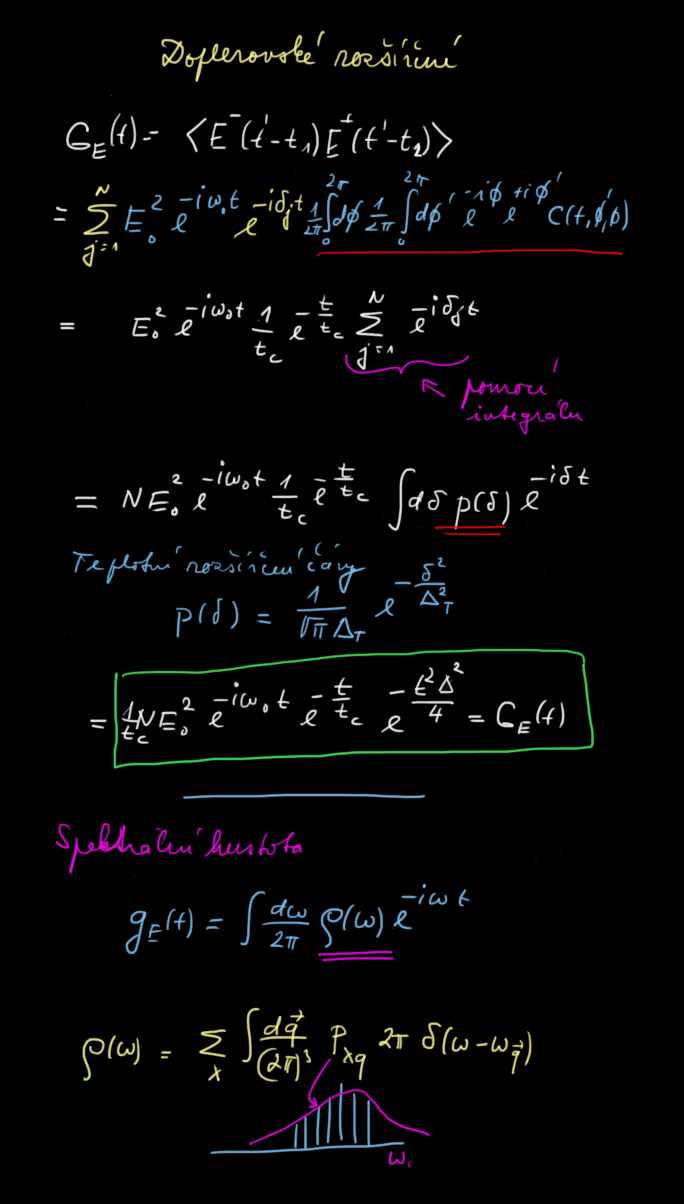 Doplerovské rozšíření
G_E(t) = ⟨E⁻(t'-t₁)E⁺(t'-t₂)⟩
= ∑_{j=1}^{N} E₀² e^{-iω₀t} e^{-iδ_j t} 1/2π ∫₀^{2π} dϕ 1/2π ∫₀^{2π} dϕ' e^{-iϕ} e^{+iϕ'} C(t,ϕ',ϕ)
= E₀² e^{-iω₀t} 1/t_c e^{-t/t_c} ∑_{j=1}^{N} e^{-iδ_j t}
pomocí
integrálu
= NE₀² e^{-iω₀t} 1/t_c e^{-t/t_c} ∫dδ p(δ) e^{-iδt}
Teplotní rozšíření čáry
p(δ) = 1/(√π Δ_T) e^{-δ²/Δ_T²}
= 1/t_c NE₀² e^{-iω₀t} e^{-t/t_c} e^{-t²Δ²/4} = G_E(t)
Spektrální hustota
g_E(t) = ∫ dω/2π ρ(ω) e^{-iωt}
ρ(ω) = ∑_λ ∫ dq⃗/(2π)³ P_{λq} 2π δ(ω-ω_{q⃗})
ω₀